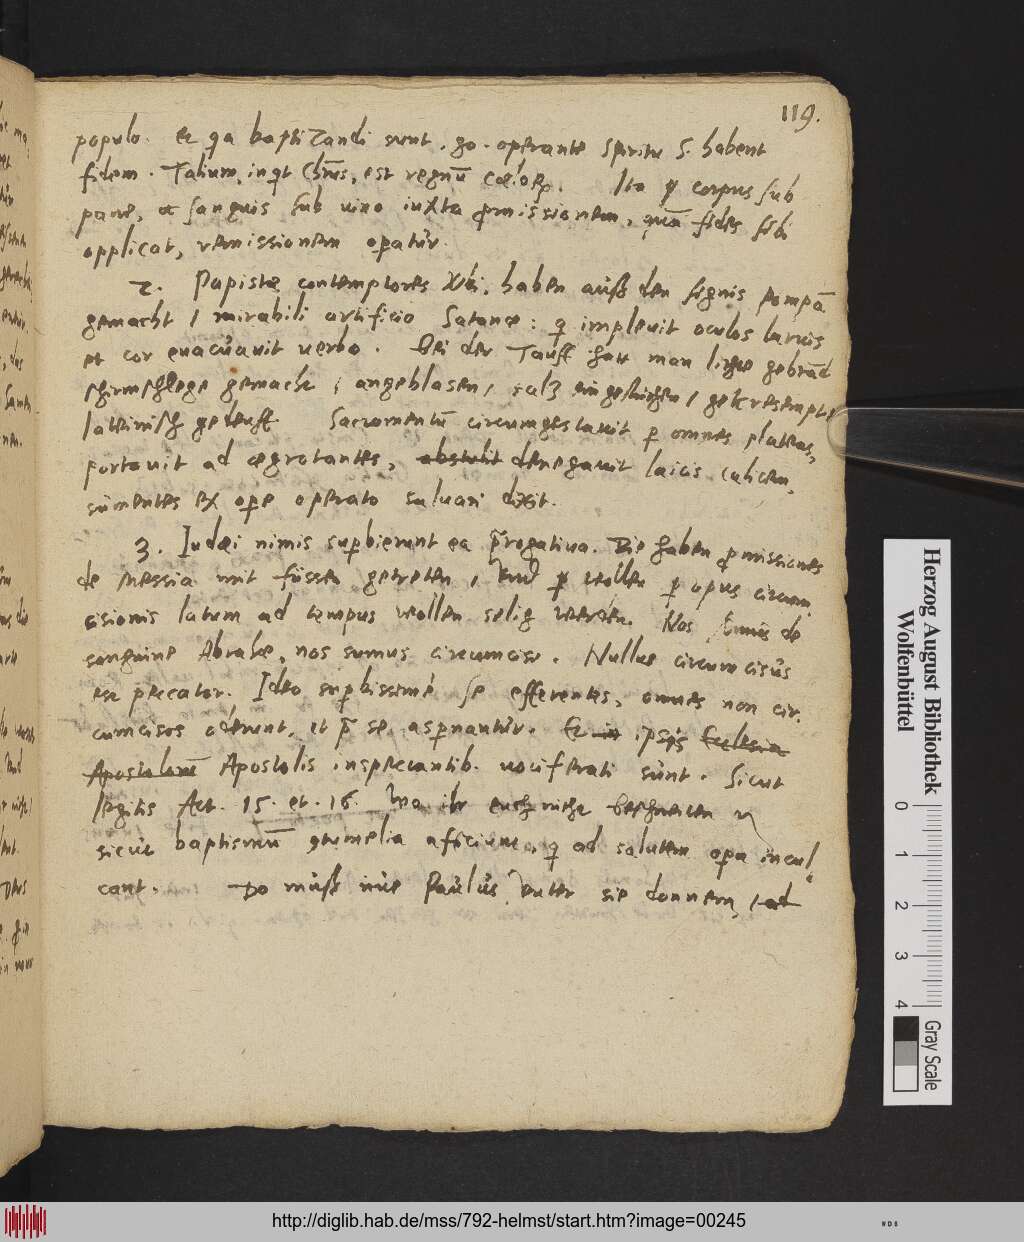 119.
populo. et qa baptizandi sunt, go. operante Spiritu S. habent
fidem. Talium, inqt Chr̃us, est regnũ cœlorꝝ. Ita ꝙ corpus sub
pane, et sanguis sub vino iuxta ꝓmissionem, quã fides sibi
applicat, remissionem opatur.
2. Papistæ contemptores Xti, haben auß den signis pompã
gemacht / mirabili artificio Satanæ: q impleuit oculos laruis
et cor euacuauit verbo. Bei der Tauff hatt man liechte gebrãd
schirmschlege gemacht / angeblasen / saltz / gekresempte
lateinisch geteufft Sacramentũ circumgestauit p omnes plateas,
portauit ad ægrotantes, abstulit denegauit laicis calicem,
sumentes ex ope operato saluari dixit.
3. Iudæi nimis supbierunt ea p̃rogatiua. Die haben ꝓmissiones
de Messia mit füssen getreten, vnd wollen p opus circum
cisionis latum ad tempus wollen selig werden. Nos sumus de
sanguine Abrahæ, nos sumus circumcisi. Nullus circumcisus
est peccator. Ideo supbissimè se efferentes, omnes non cir
cumcisos oderunt, et p̃ se aspnantur. Et in ipsis Ecclesia
Apostolorũ Apostolis inspectantib. vociferati sunt. Sicut
legitis Act. 15. et. 16. Wo ihr euch nicht beschneiten
sicut baptismũ ꝯtumelia afficiunt, q ad salutem opa incul
cant. Do muß nue Paulus vnter sie donnern, ad
Herzog August Bibliothek
Wolfenbüttel
0 1 2 3 4
Gray Scale
http://diglib.hab.de/mss/792-helmst/start.htm?image=00245